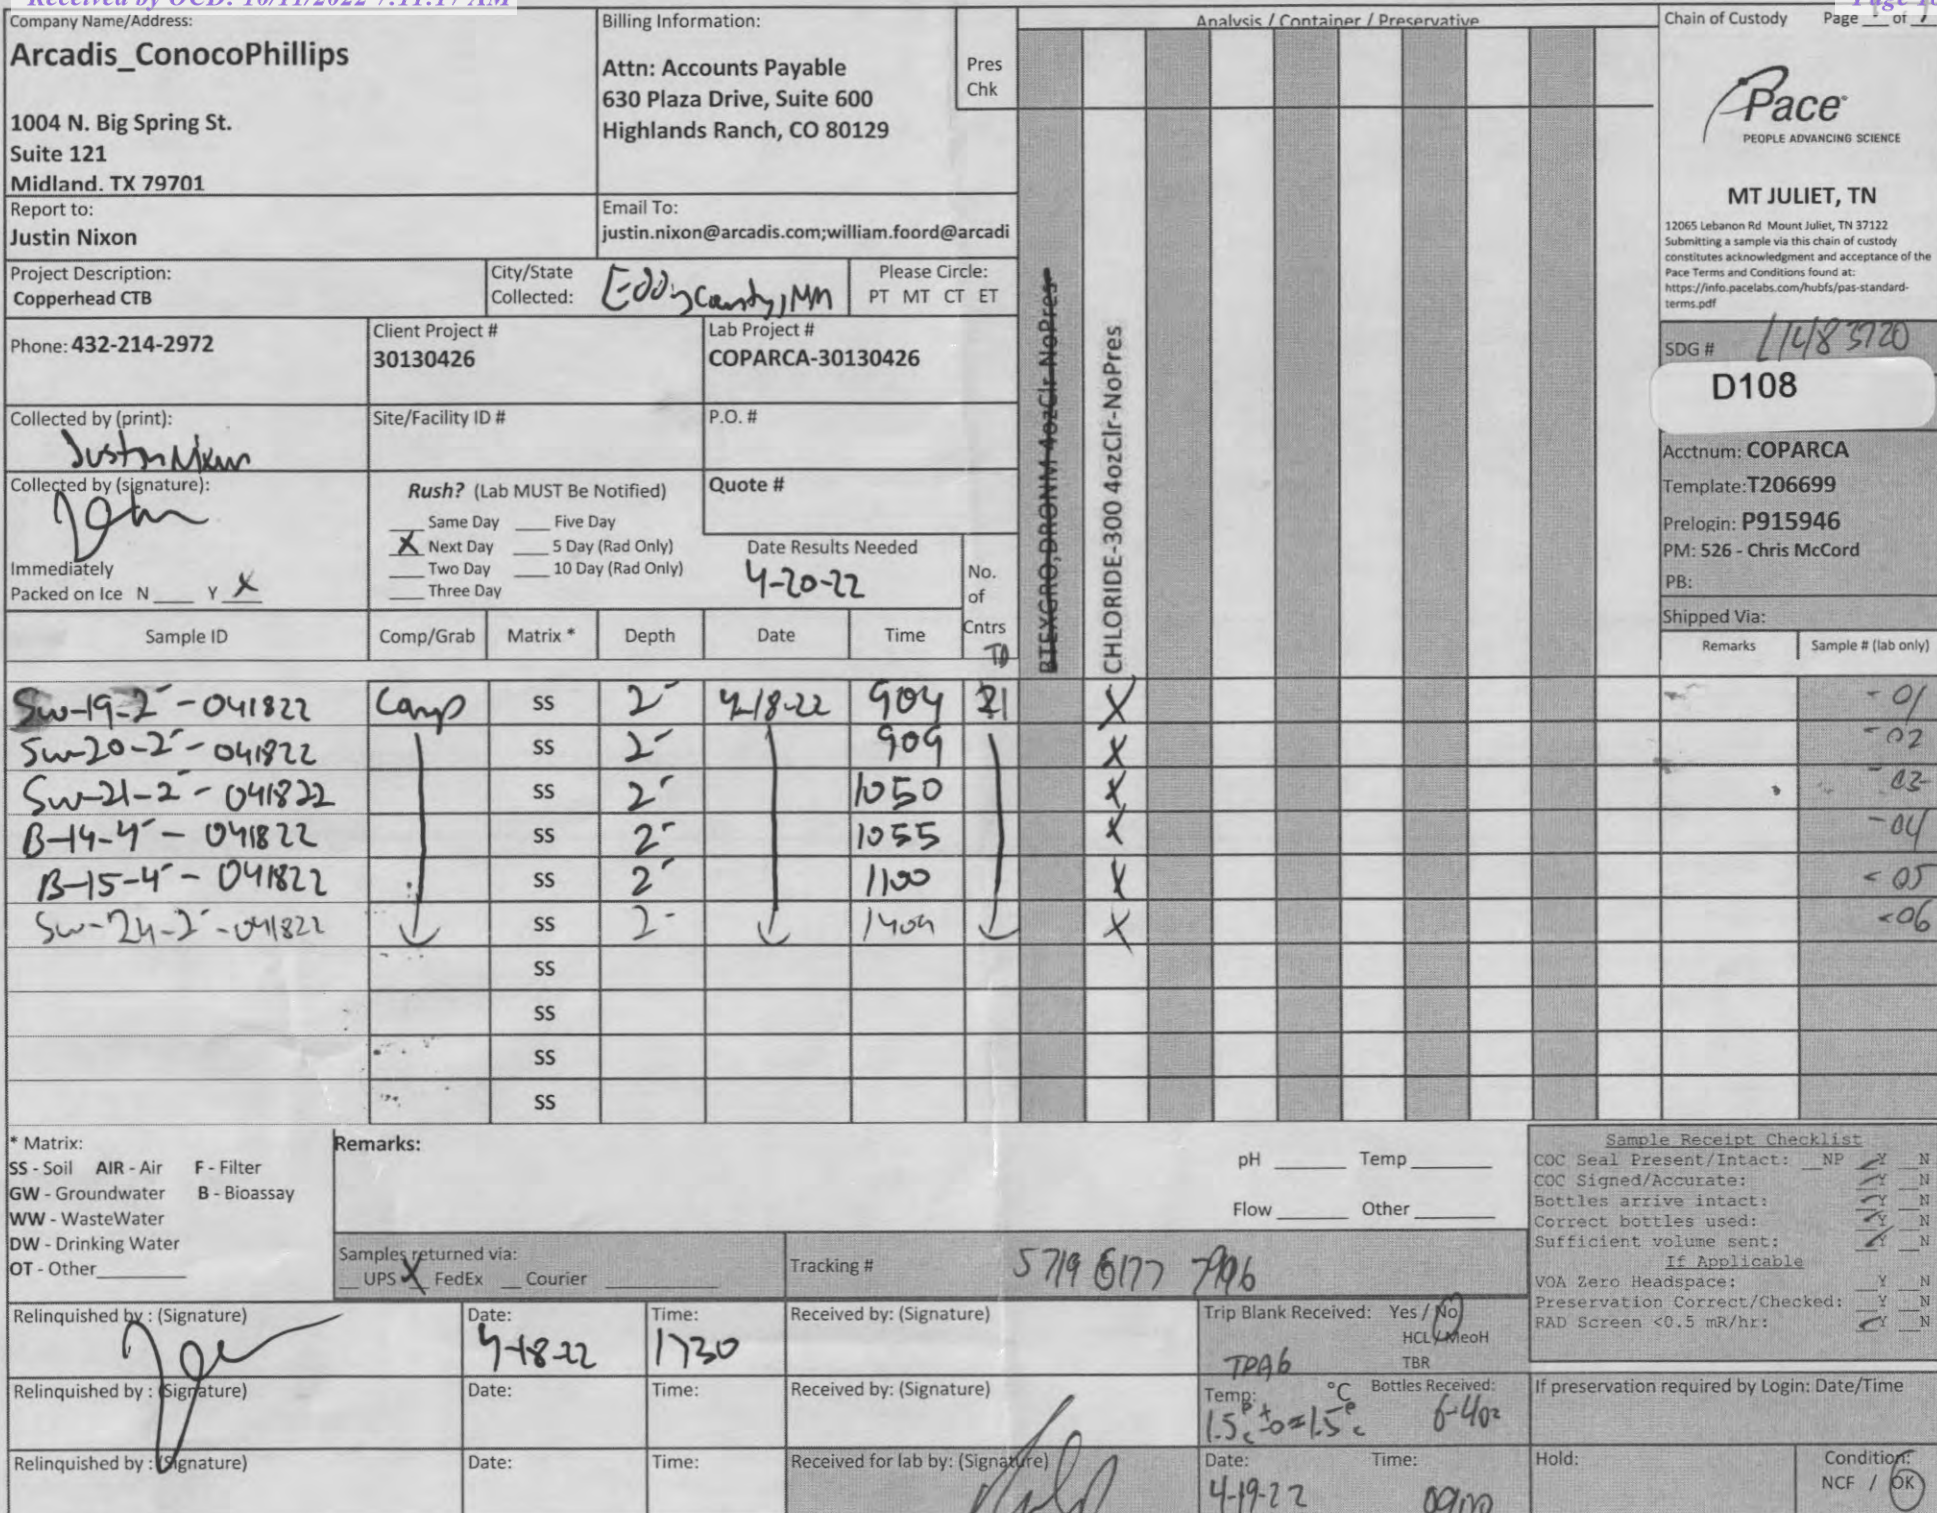 Received by OCD: 10/11/2022 7:11:17 AM
Company Name/Address:
Arcadis_ConocoPhillips
1004 N. Big Spring St.
Suite 121
Midland, TX 79701
Billing Information:
Attn: Accounts Payable
630 Plaza Drive, Suite 600
Highlands Ranch, CO 80129
Pres
Chk
Analysis / Container / Preservative
Chain of Custody Page of
Pace
PEOPLE ADVANCING SCIENCE
MT JULIET, TN
12065 Lebanon Rd Mount Juliet, TN 37122
Submitting a sample via this chain of custody
constitutes acknowledgment and acceptance of the
Pace Terms and Conditions found at:
https://info.pacelabs.com/hubfs/pas-standard-
terms.pdf
Report to:
Justin Nixon
Email To:
justin.nixon@arcadis.com;william.foord@arcadi
Project Description:
Copperhead CTB
City/State
Collected: Eddy County, NM
Please Circle:
PT MT CT ET
Phone: 432-214-2972
Client Project #
30130426
Lab Project #
COPARCA-30130426
SDG # L1483720
D108
Collected by (print):
Justin Nixon
Site/Facility ID #
P.O. #
Acctnum: COPARCA
Template: T206699
Prelogin: P915946
PM: 526 - Chris McCord
PB:
Shipped Via:
Collected by (signature):
Immediately
Packed on Ice N ___ Y X
Rush? (Lab MUST Be Notified)
___ Same Day ___ Five Day
X Next Day ___ 5 Day (Rad Only)
___ Two Day ___ 10 Day (Rad Only)
___ Three Day
Quote #
Date Results Needed
4-20-22
No.
of
Cntrs
BTEXGRO,DRONM 4ozClr-NoPres
CHLORIDE-300 4ozClr-NoPres
Sample ID Comp/Grab Matrix * Depth Date Time Remarks Sample # (lab only)
SW-19-2'-041822 Comp SS 2' 4-18-22 904 1 X -01
SW-20-2'-041822 SS 2' 909 X -02
SW-21-2'-041822 SS 2' 1050 X -03
B-14-4'-041822 SS 2' 1055 X -04
B-15-4'-041822 SS 2' 1100 X -05
SW-24-2'-041822 SS 2' X -06
SS
SS
SS
SS
* Matrix:
SS - Soil AIR - Air F - Filter
GW - Groundwater B - Bioassay
WW - WasteWater
DW - Drinking Water
OT - Other
Remarks:
pH ___ Temp ___
Flow ___ Other ___
Samples returned via:
___ UPS X FedEx ___ Courier
Tracking # 5719 6177
Sample Receipt Checklist
COC Seal Present/Intact: __NP Y __N
COC Signed/Accurate: Y __N
Bottles arrive intact: Y __N
Correct bottles used: Y __N
Sufficient volume sent: Y __N
If Applicable
VOA Zero Headspace: __Y __N
Preservation Correct/Checked: __Y __N
RAD Screen <0.5 mR/hr: Y __N
Relinquished by : (Signature)
Date:
4-18-22
Time:
1730
Received by: (Signature)
Trip Blank Received: Yes / No
HCL / MeoH
TBR
Relinquished by : (Signature)
Date:
Time:
Received by: (Signature)
Temp: °C
1.5+0=1.5
Bottles Received:
6-4oz
If preservation required by Login: Date/Time
Relinquished by : (Signature)
Date:
Time:
Received for lab by: (Signature)
Date:
4-19-22
Time:
0900
Hold:
Condition:
NCF / OK